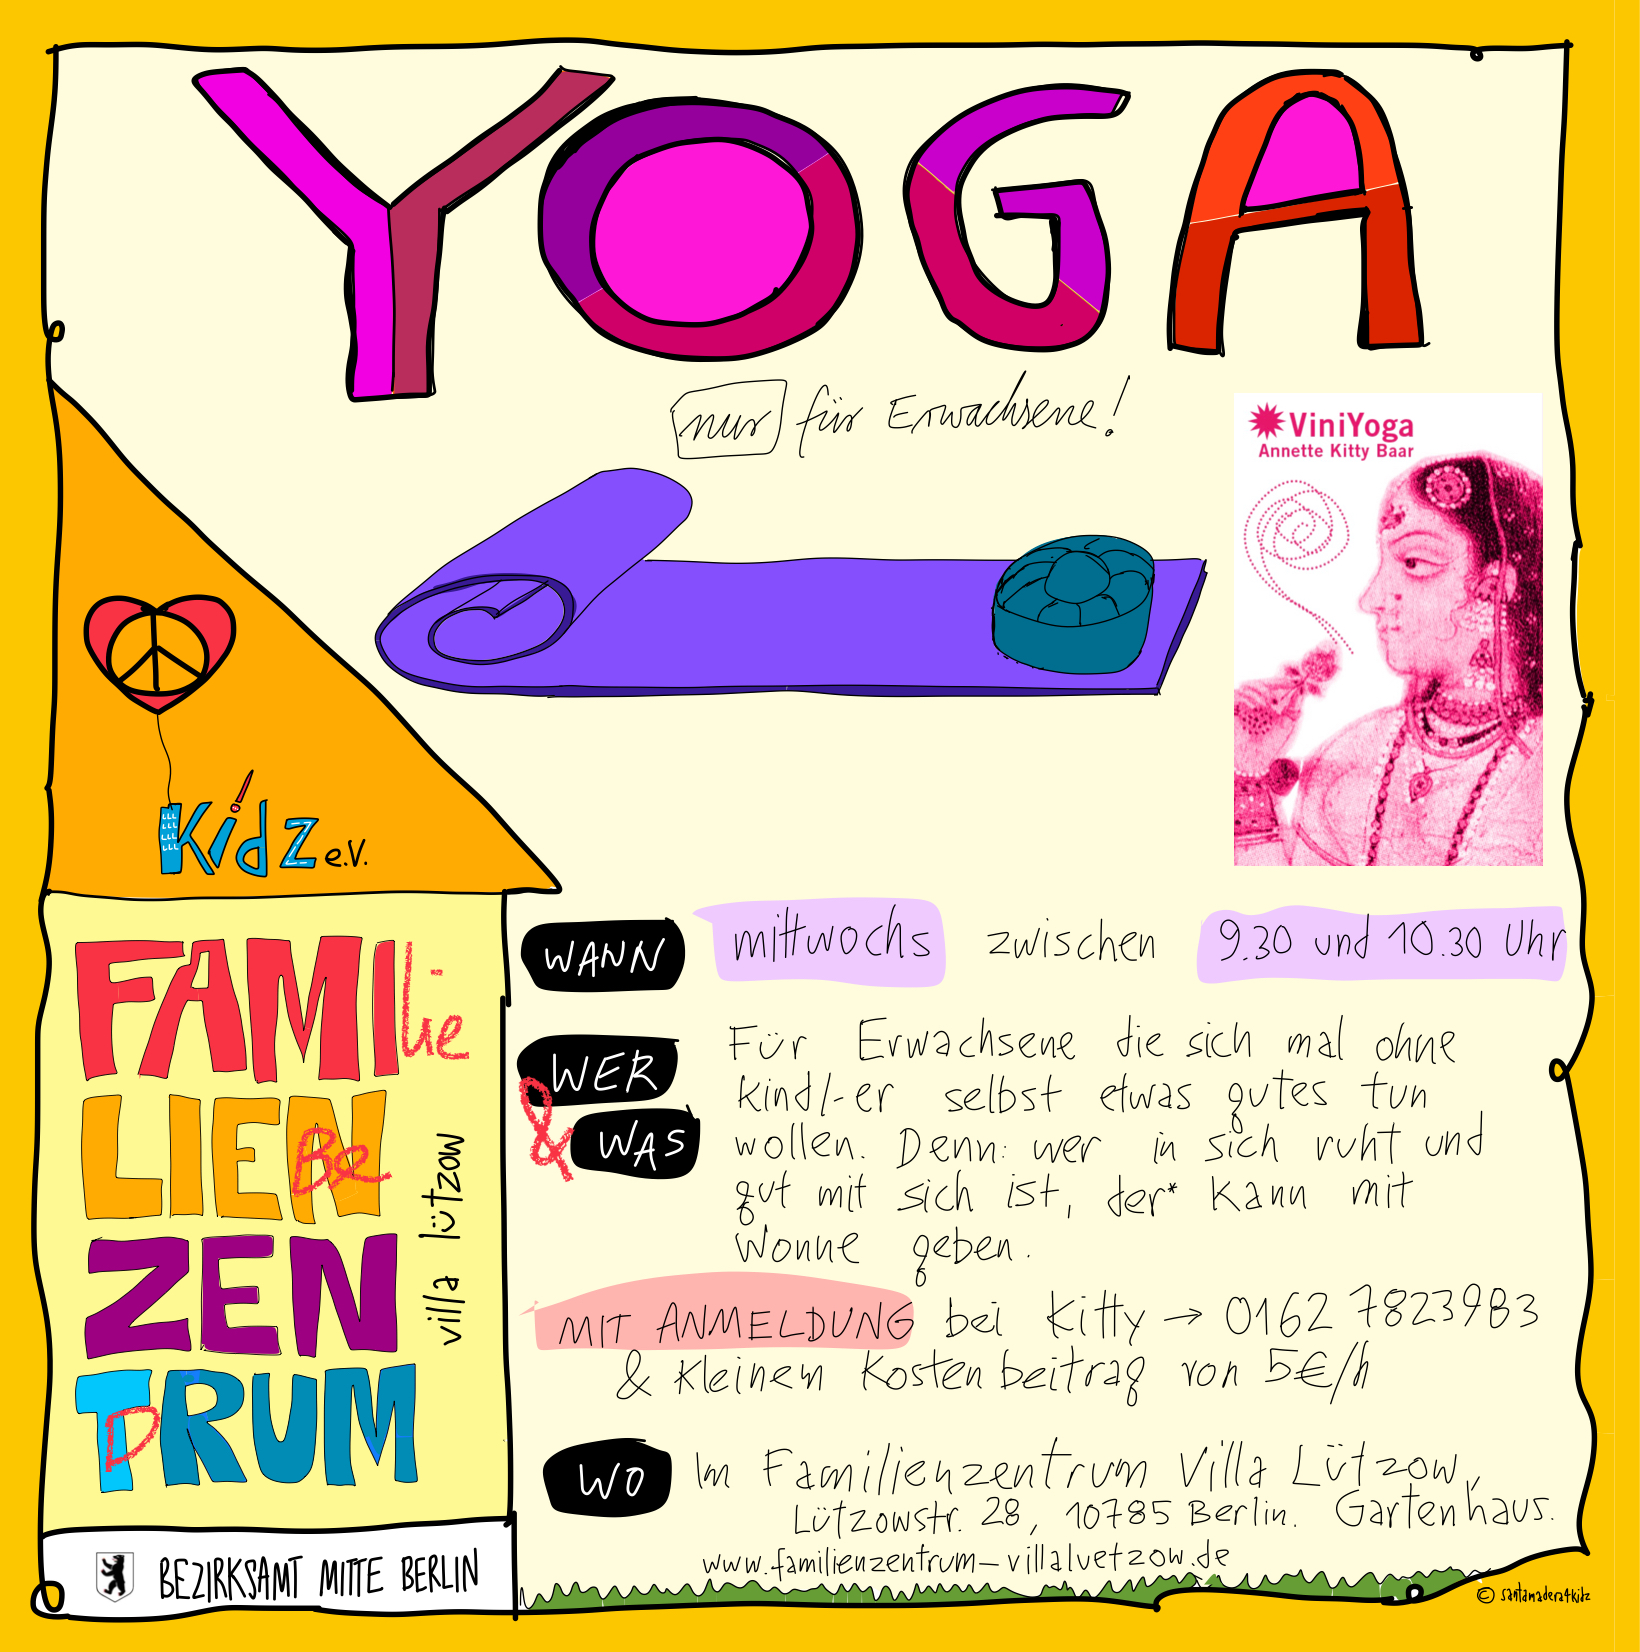 YOGA
nur für Erwachsene!
ViniYoga
Annette Kitty Baar
Kidz e.V.
FAMILIE-
LIENBe
ZEN
TRUM
villa lützow
BEZIRKSAMT MITTE BERLIN
WANN mittwochs zwischen 9.30 und 10.30 Uhr
WER & WAS
Für Erwachsene die sich mal ohne
kind/-er selbst etwas gutes tun
wollen. Denn: wer in sich ruht und
gut mit sich ist, der* kann mit
Wonne geben.
MIT ANMELDUNG bei Kitty → 0162 7823983
& kleinem Kostenbeitrag von 5€/h
WO Im Familienzentrum Villa Lützow,
Lützowstr. 28, 10785 Berlin. Gartenhaus.
www.familienzentrum-villaluetzow.de
© santamadera4kidz